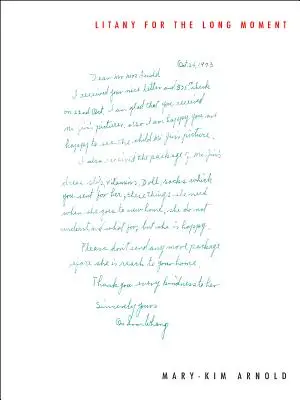 LITANY FOR THE LONG MOMENT
Oct 26, 1973
Dear Mr Mrs Arnold
I received your nice letter and $35.00 check
on 22nd Oct. I am glad that you received
Mi Jin's pictures. also I am happy you are
happy to see the child Mi Jin's picture.
I also received the package of Mi Jin's
dress, slip, vitamins, Doll, socks which
you sent for her, these things she need
when she goes to new home, she do not
understand what for, but she is happy.
Please don't send any more package
before she is reach to your home.
Thank you every kindness to her
Sincerely yours
MARY-KIM ARNOLD